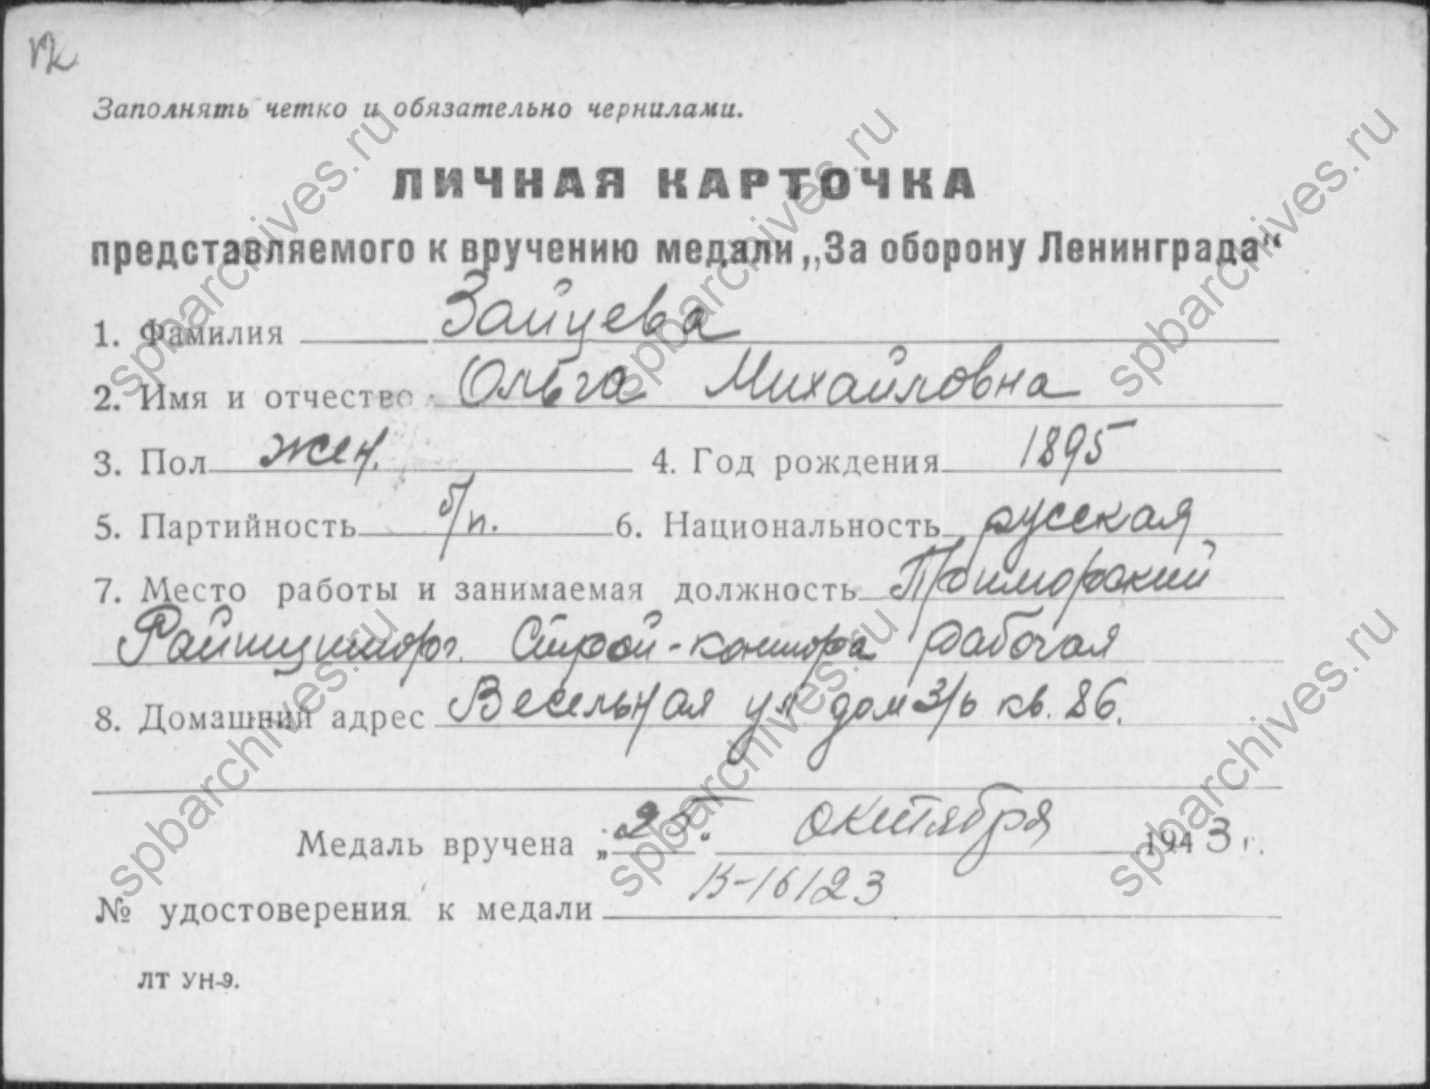 Заполнять четко и обязательно чернилами.
ЛИЧНАЯ КАРТОЧКА
представляемого к вручению медали „За оборону Ленинграда“
1. Фамилия Зайцева
2. Имя и отчество Ольга Михайловна
3. Пол жен. 4. Год рождения 1895
5. Партийность б/п. 6. Национальность русская
7. Место работы и занимаемая должность Приморский
Строй-контора рабочая
8. Домашний адрес Весельная ул дом кв. 86.
Медаль вручена „25“ октября 1943 г.
№ удостоверения к медали В-16123
ЛТ УН-9.
spbarchives.ru
spbarchives.ru
spbarchives.ru
spbarchives.ru
spbarchives.ru
spbarchives.ru